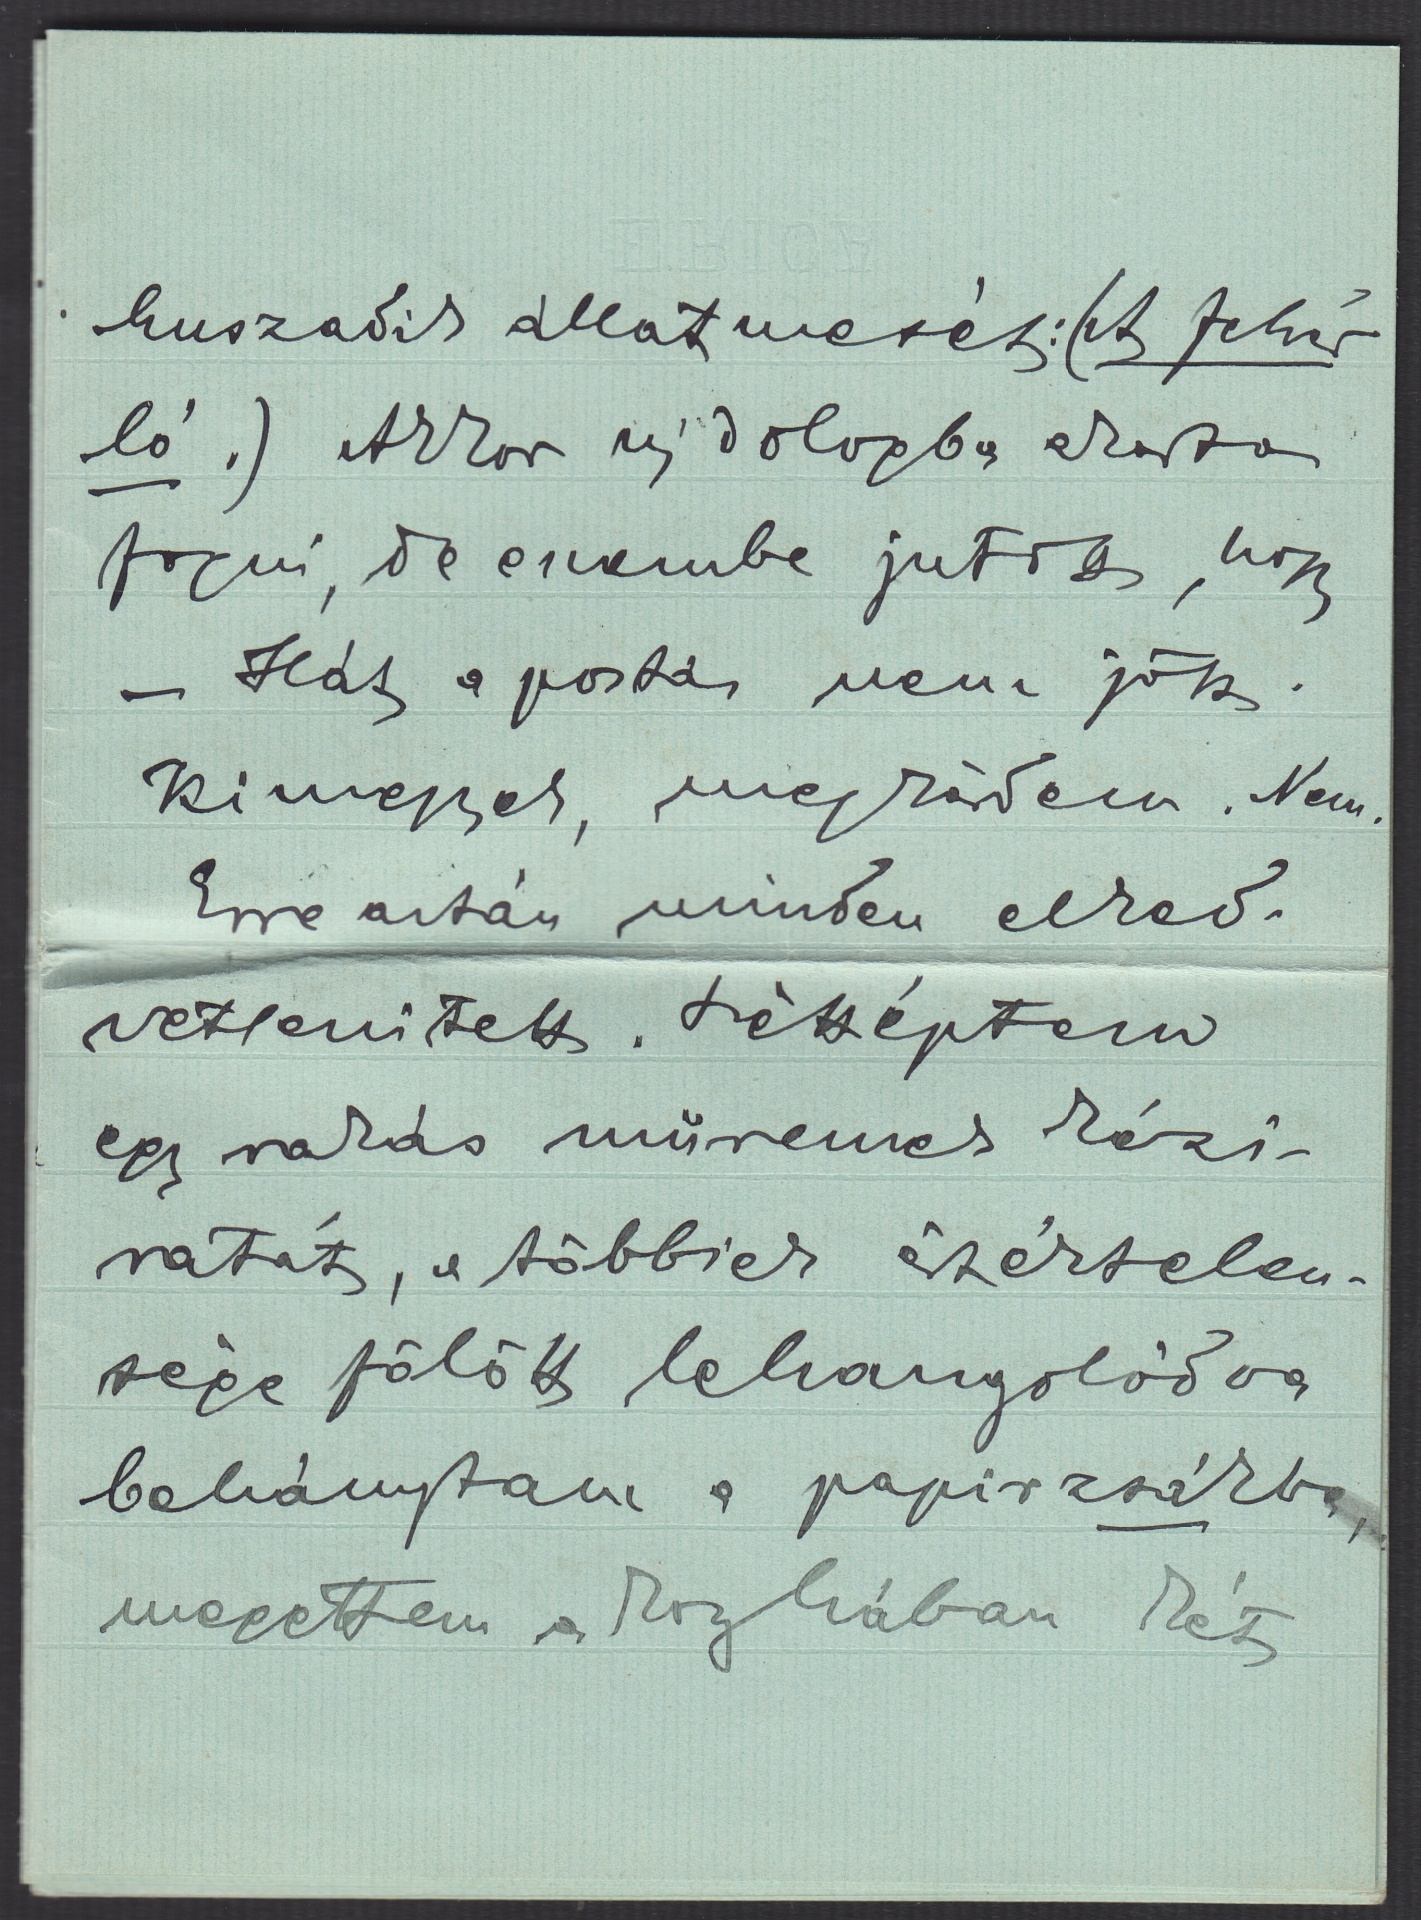 huszadik állatmesét: (A fehér
ló.) Akkor uj dologba akartam
fogni, de eszembe jutott, hogy
– Hát a postás nem jött.
Kimegyek, megkérdem. Nem.
Erre aztán minden elked-
vetlenitett. Széttéptem
egy rakás művemek kézi-
ratát, a többiek észértelen-
sége fölött lehangolódva
behánytam a papirzsákba,
megettem a konyhában két